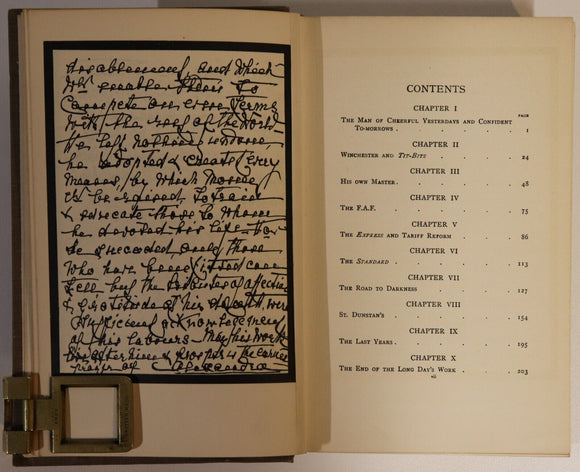 disablement, and Which
Wd. enable them to
Compete on even terms
With the rest of the World
He left nothing undone
he adopted & created every
means by Which money
cd. be to train
& educate those to Whom
he devoted his life. How
he succeeded only those
Who have been can
tell but the tributes of affection
& gratitude of his were
sufficient acknowledgment
of his labours. May his work
live after him & prosper is the earnest
prayer of Alexandra
CONTENTS
CHAPTER I
PAGE
The Man of Cheerful Yesterdays and Confident
To-morrows . . . . . . 1
CHAPTER II
Winchester and Tit-Bits . . . . 24
CHAPTER III
His own Master . . . . . . 48
CHAPTER IV
The F.A.F. . . . . . . 75
CHAPTER V
The Express and Tariff Reform . . . 86
CHAPTER VI
The Standard . . . . . . 113
CHAPTER VII
The Road to Darkness . . . . 127
CHAPTER VIII
St. Dunstan's . . . . . . 154
CHAPTER IX
The Last Years . . . . . . 195
CHAPTER X
The End of the Long Day's Work . . . 203
vii